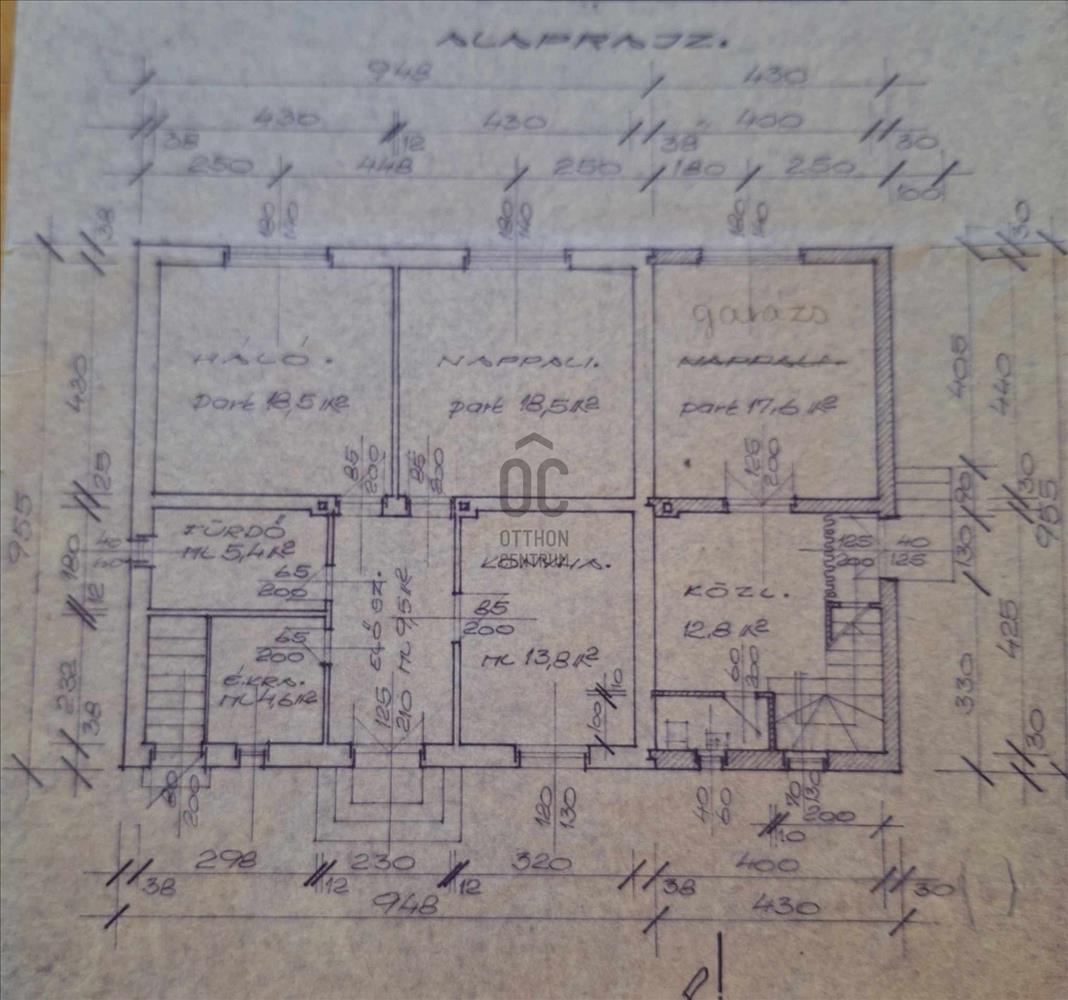 ALAPRAJZ.
948 430
430 430 400
38 12 38 30
250 448 250 180 250
100
180
140
180
140
180
140
38
30
garázs
HÁLÓ.
NAPPALI.
NAPPALI.
part 18,5 M2
part 18,5 M2
part 17,6 M2
430
405
440
85
200
85
200
125
200
25
190
30
955
955
ÓC
OTTHON
CENTRUM
FÜRDŐ
ML 5,4 M2
KONYHA.
65
200
125
200
40
125
130
180
12
ELŐSZ.
ML 9,5 M2
85
200
KÖZL.
12,8 M2
65
200
ML 13,8 M2
60
200
É.KRA.
ML 4,6 M2
232
38
425
330
30
125
210
100
10
80
200
120
130
40
60
70
130
200
10
298 230 320 400
38 12 12 38 30
948 430